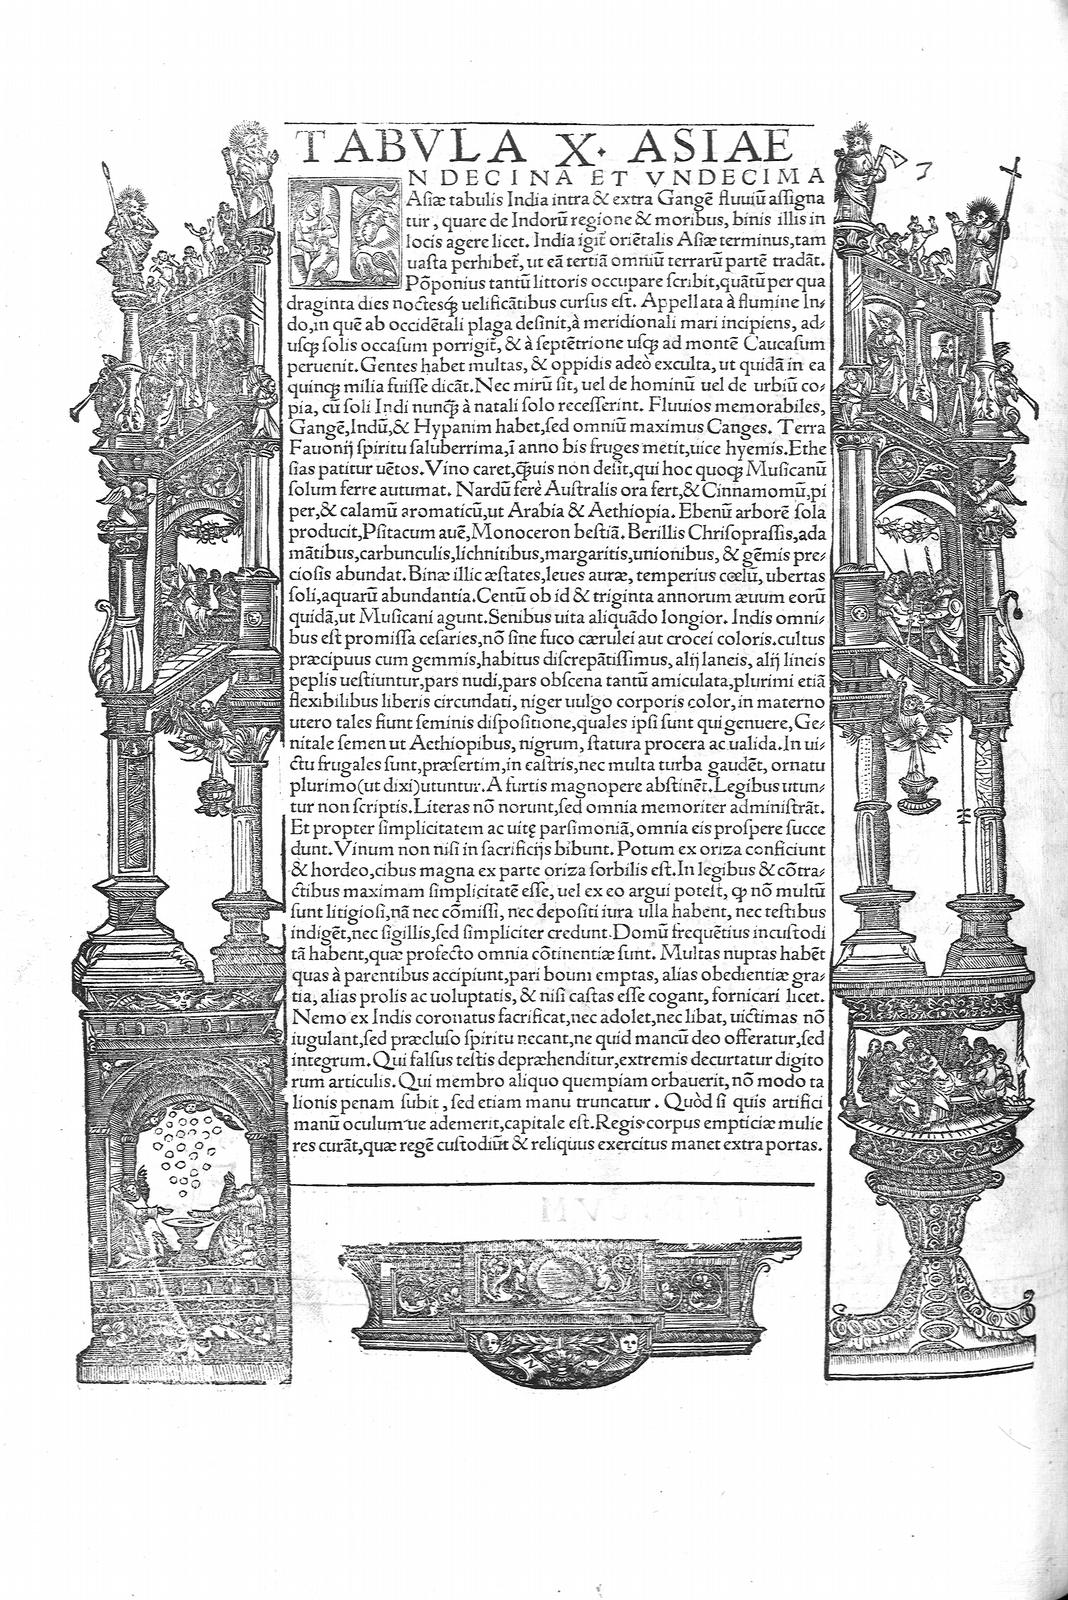 TABVLA X. ASIAE
IN DECINA ET VNDECIMA
Asiæ tabulis India intra & extra Gangē fluuiū assigna
tur, quare de Indorū regione & moribus, binis illis in
locis agere licet. India igit̄ oriētalis Asiæ terminus, tam
uasta perhibet̄, ut eā tertiā omniū terrarū partē tradāt.
Pōponius tantū littoris occupare scribit, quātū per qua
draginta dies noctesq̷ uelificātibus cursus est. Appellata à flumine In⸗
do, in quē ab occidētali plaga desinit, à meridionali mari incipiens, ad⸗
usq̷ solis occasum porrigit̄, & à septētrione usq̷ ad montē Caucasum
peruenit. Gentes habet multas, & oppidis adeò exculta, ut quidā in ea
quinq̷ milia fuisse dicāt. Nec mirū sit, uel de hominū uel de urbiū co⸗
pia, cū soli Indi nunq̷̄ à natali solo recesserint. Fluuios memorabiles,
Gangē, Indū, & Hypanim habet, sed omniū maximus Canges. Terra
Fauonij spiritu saluberrima, ī anno bis fruges metit, uice hyemis. Ethe
sias patitur uētos. Vino caret, q̷̄uis non desit, qui hoc quoq̷ Musicanū
solum ferre autumat. Nardū ferè Australis ora fert, & Cinnamomū, pi
per, & calamū aromaticū, ut Arabia & Aethiopia. Ebenū arborē sola
producit, Psitacum auē, Monoceron bestiā. Berillis Chrisoprassis, ada
mātibus, carbunculis, lichnitibus, margaritis, unionibus, & gēmis pre⸗
ciosis abundat. Binæ illic æstates, leues auræ, temperius cœlū, ubertas
soli, aquarū abundantia. Centū ob id & triginta annorum æuum eorū
quidā, ut Musicani agunt. Senibus uita aliquādo longior. Indis omni⸗
bus est promissa cesaries, nō sine fuco cærulei aut crocei coloris. cultus
præcipuus cum gemmis, habitus discrepātissimus, alij laneis, alij lineis
peplis uestiuntur, pars nudi, pars obscena tantū amiculata, plurimi etiā
flexibilibus liberis circundati, niger uulgo corporis color, in materno
utero tales fiunt seminis dispositione, quales ipsi sunt qui genuere, Ge⸗
nitale semen ut Aethiopibus, nigrum, statura procera ac ualida. In ui⸗
ctu frugales sunt, præsertim, in castris, nec multa turba gaudēt, ornatu
plurimo (ut dixi) utuntur. A furtis magnopere abstinēt. Legibus utun⸗
tur non scriptis. Literas nō norunt, sed omnia memoriter administrāt.
Et propter simplicitatem ac uitę parsimoniā, omnia eis prospere succe
dunt. Vinum non nisi in sacrificijs bibunt. Potum ex oriza conficiunt
& hordeo, cibus magna ex parte oriza sorbilis est. In legibus & cōtra⸗
ctibus maximam simplicitatē esse, uel ex eo argui potest, q̷ nō multū
sunt litigiosi, nā nec cōmissi, nec depositi iura ulla habent, nec testibus
indigēt, nec sigillis, sed simpliciter credunt. Domū frequētius incustodi
tā habent, quæ profecto omnia cōtinentiæ sunt. Multas nuptas habēt
quas à parentibus accipiunt, pari boum emptas, alias obedientiæ gra⸗
tia, alias prolis ac uoluptatis, & nisi castas esse cogant, fornicari licet.
Nemo ex Indis coronatus sacrificat, nec adolet, nec libat, uictimas nō
iugulant, sed præcluso spiritu necant, ne quid mancū deo offeratur, sed
integrum. Qui falsus testis depræhenditur, extremis decurtatur digito
rum articulis. Qui membro aliquo quempiam orbauerit, nō modo ta
lionis penam subit, sed etiam manu truncatur. Quòd si quis artifici
manū oculum ue ademerit, capitale est. Regis corpus empticiæ mulie
res curāt, quæ regē custodiūt & reliquus exercitus manet extra portas.
7